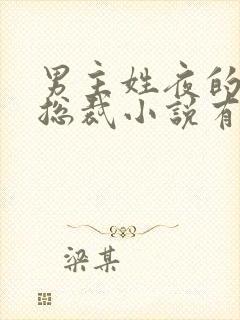 男主姓夜的
总裁小說有
梁某